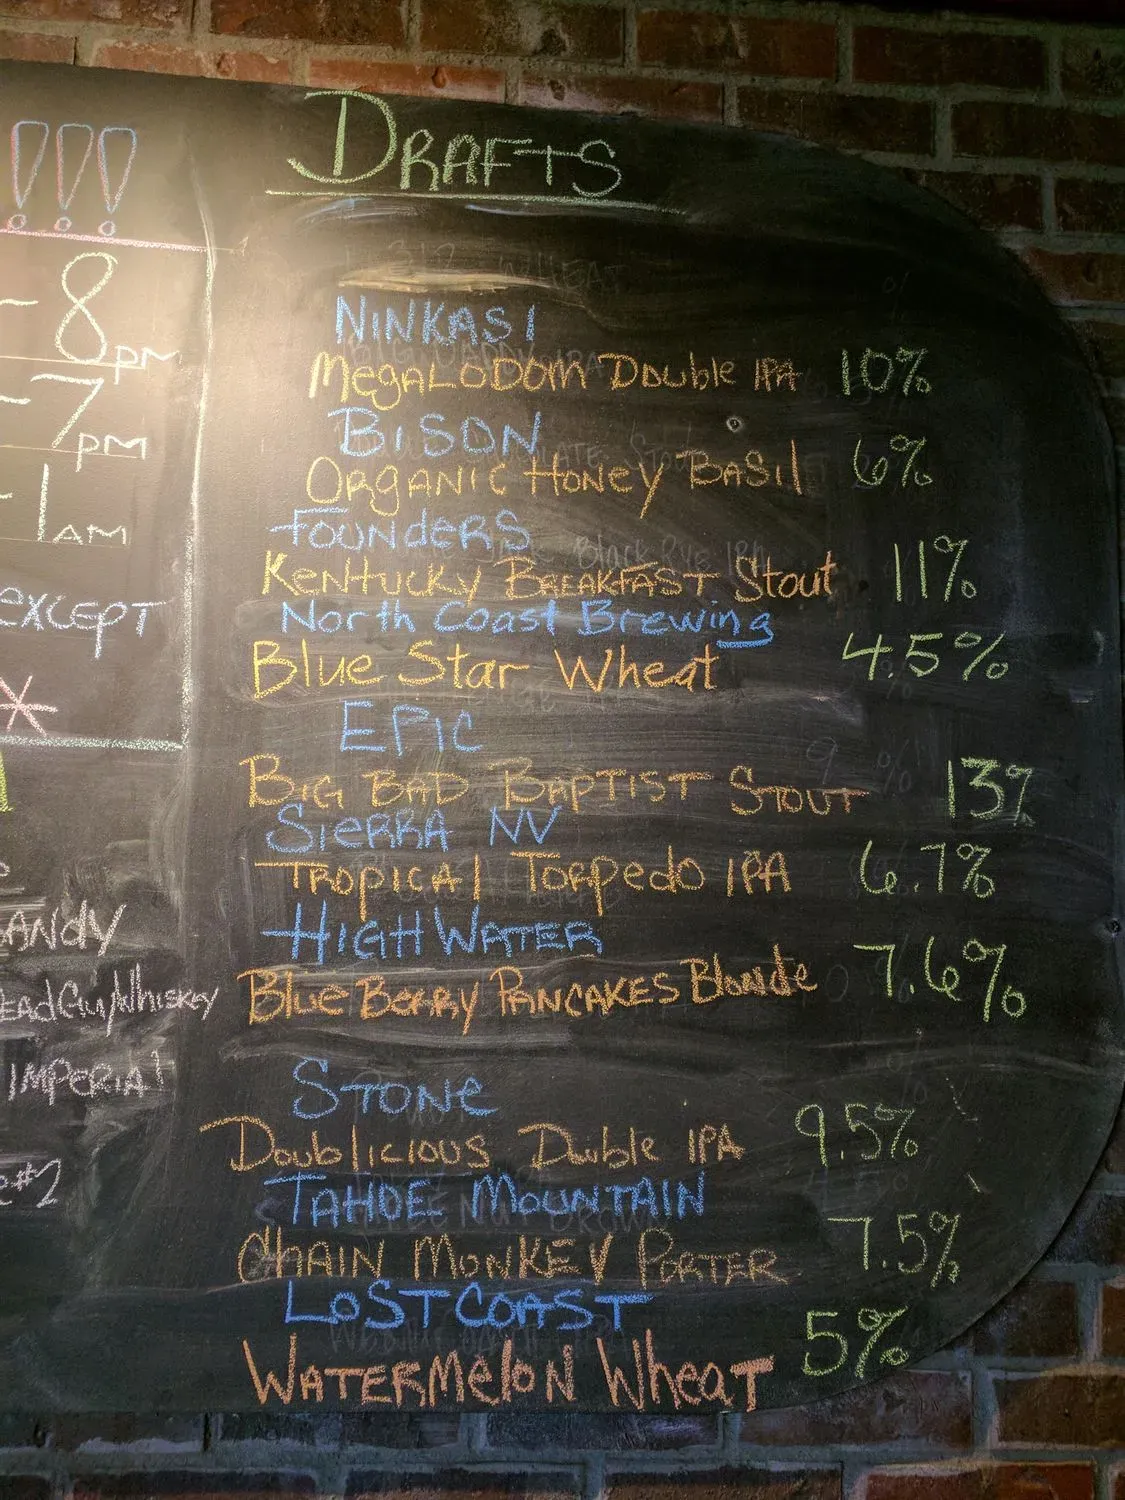 !!!
-8PM
-7PM
-1AM
EXCEPT
*
ANDY
EADGUY/WHISKEY
IMPERIAL
#2
DRAFTS
NINKASI
MEGALODOM DOUBLE IPA 10%
BISON
ORGANIC HONEY BASIL 6%
FOUNDERS
KENTUCKY BREAKFAST Stout 11%
North Coast Brewing
Blue Star Wheat 4.5%
EPIC
BIG BAD BAPTIST STOUT 13%
SIERRA NV
TROPICAL TORPEDO IPA 6.7%
HIGH WATER
BLUEBERRY PANCAKES Blonde 7.6%
STONE
DOUBLICIOUS Double IPA 9.5%
TAHOE MOUNTAIN
CHAIN MONKEY PORTER 7.5%
LOST COAST
WATERMELON WHEAT 5%